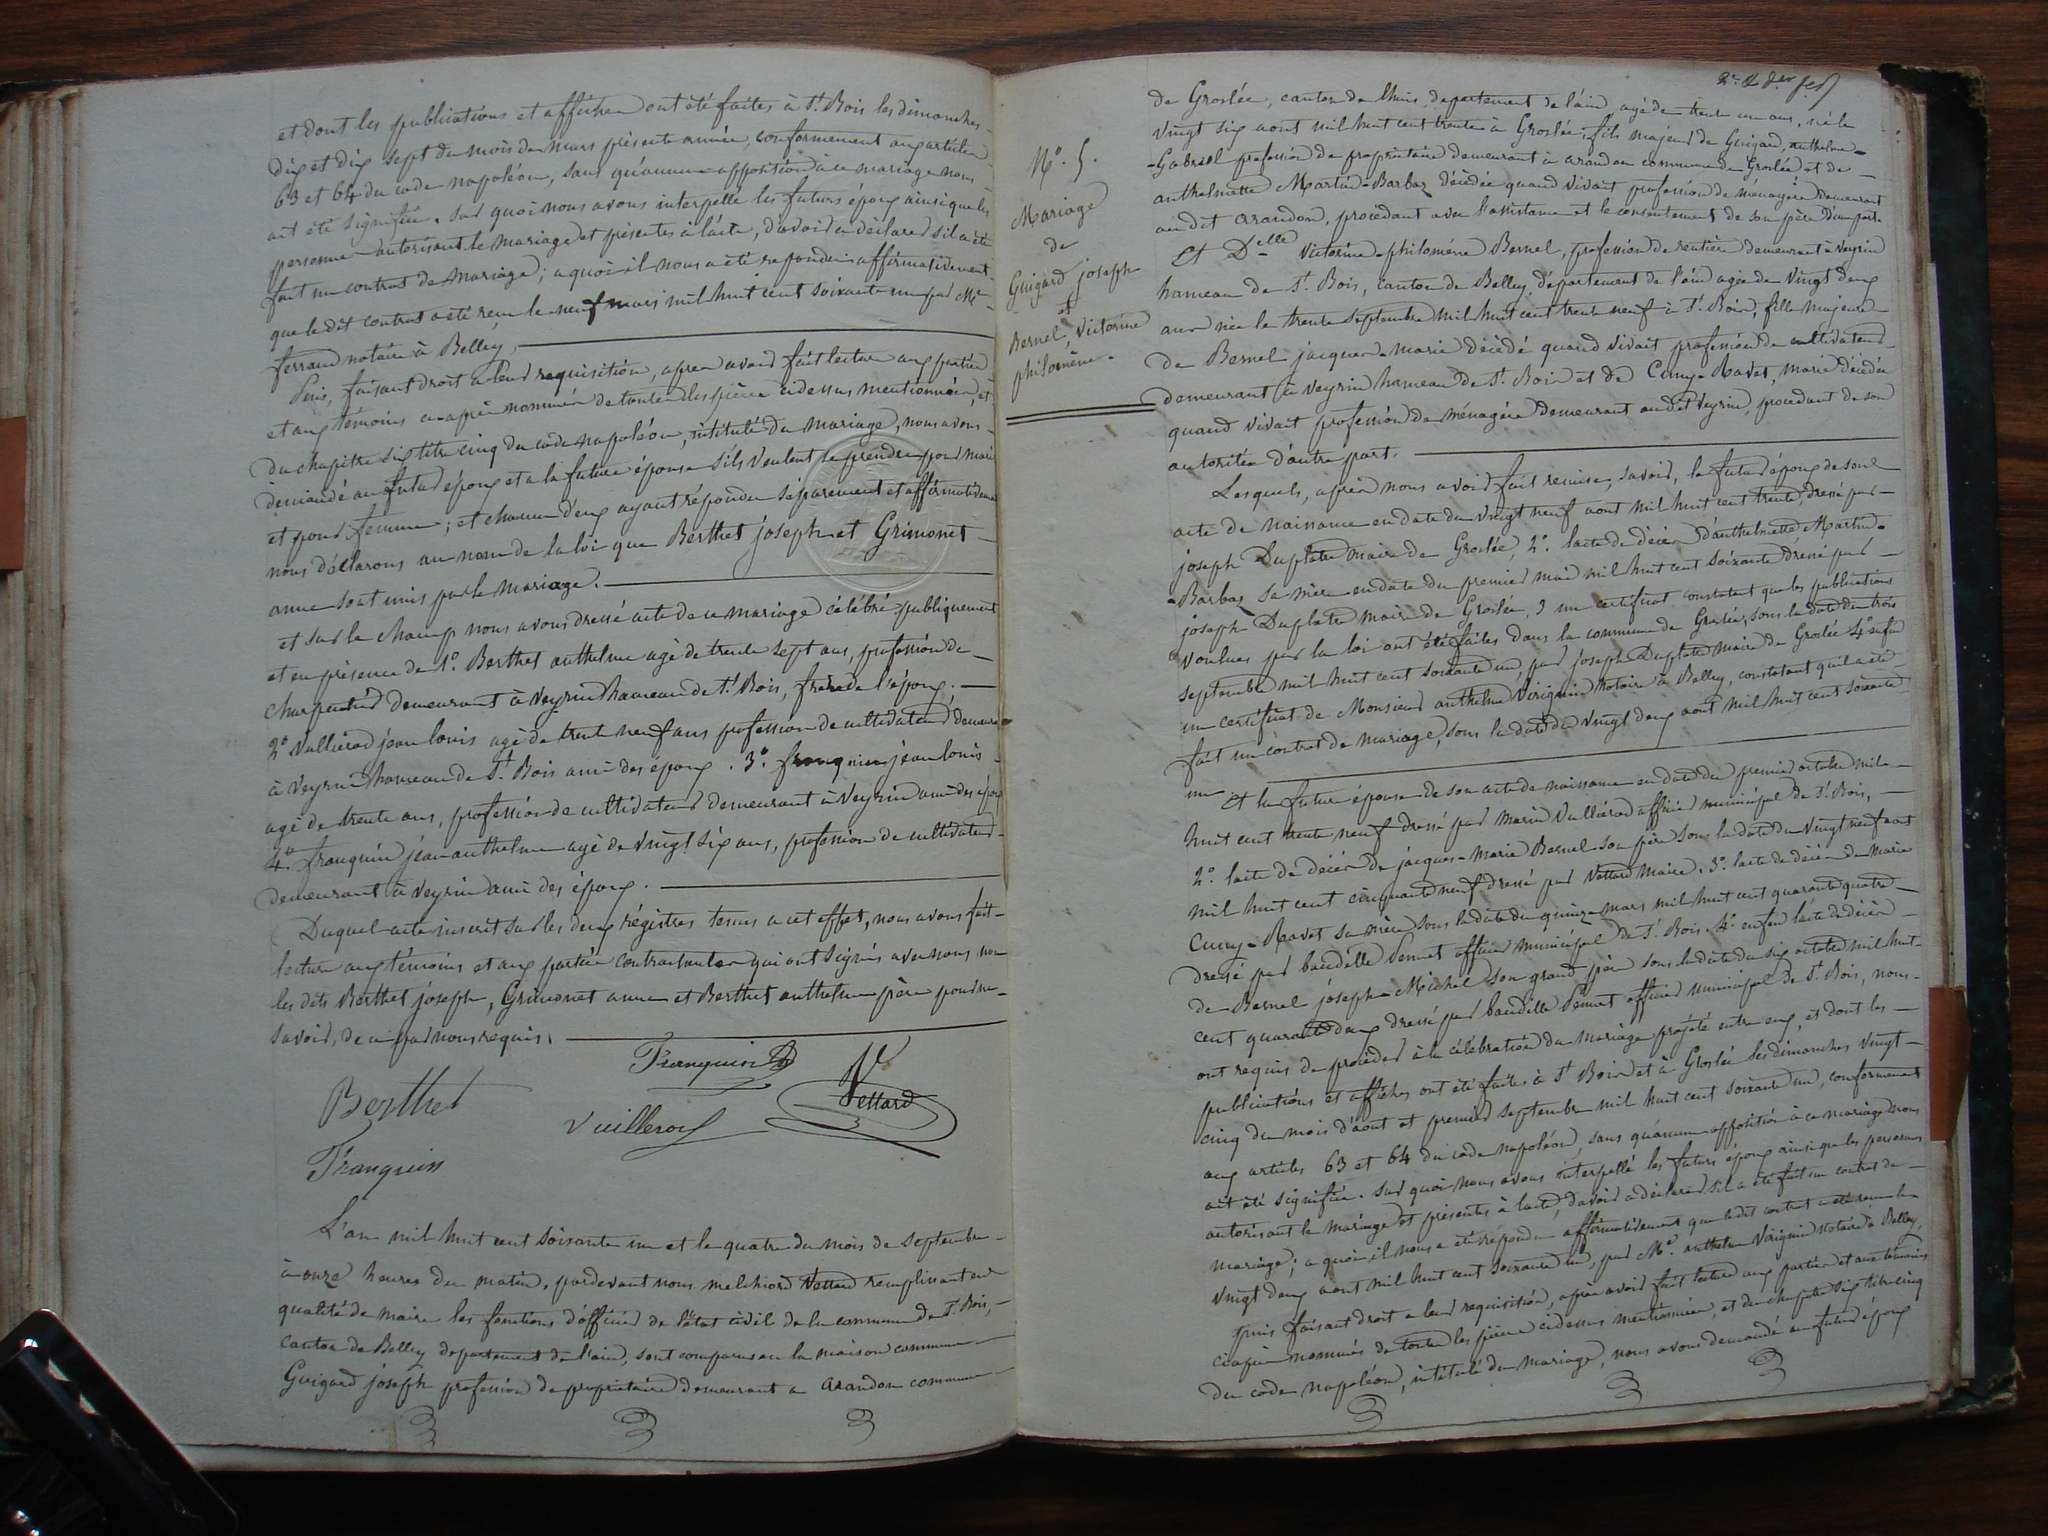 et dont les publications et affiches ont été faites à St Bois les dimanches
dix et dix sept du mois de mars présente année, conformement aux articles
63 et 64 du code napoléon, sans qu'aucune opposition à ce mariage nous
ait été signifiée. Sur quoi nous avons interpellé les futurs époux ainsi que les
personnes autorisant le mariage et présentes à l'acte, d'avoir à déclarer s'il a été
fait un contrat de mariage; a quoi il nous a été repondu affirmativement
que le dit contrat a été reçu le neuf mars mil huit cent soixante un par Me
ferrand notaire à Belley.
Puis, faisant droit a leur requisition, apres avoir fait lecture aux parties
et aux témoins ci-après nommés de toutes les pièces cidessus mentionnées, et
du chapitre six titre cinq du code napoléon, intitulé du mariage, nous avons
demandé au futur époux et a la future épouse s'ils veulent se prendre pour mari
et pour femme; et chacun d'eux ayant répondu séparement et affirmativement
nous déclarons au nom de la loi que Berthet joseph et Grimonet
anne sont unis par le mariage.
et sur le champ nous avons dressé acte de ce mariage célébré publiquement
et en présence de 1º. Berthet anthelme agé de trente sept ans, profession de
charpentier demeurant à Veyrin hameau de St Bois, frère de l'époux.
2º Vullierod jean louis agé de trente neuf ans profession de cultivateur demeurant
à Veyrin hameau de St. Bois ami des époux. 3º. franquin jean louis
agé de trente ans, profession de cultivateur demeurant à Veyrin ami des époux
4º. franquin jean anthelme agé de vingt six ans, profession de cultivateur
demeurant à Veyrin ami des époux.
Duquel acte inscrit sur les deux régistres tenus a cet effet, nous avons fait
lecture aux témoins et aux parties contractantes qui ont signés avec nous non
les dits Berthet joseph, Grimonet anne et Berthet anthelme père pour ne
savoir, de ce par nous requis.
Franquin
Berthet
Vettard
Vuillerod
Franquin
L'an mil huit cent soixante un et le quatre du mois de septembre
à onze heures du matin, pardevant nous melchiord Vettard remplissant en
qualité de maire les fonctions d'officier de l'état civil de la commune de St Bois,
canton de Belley departement de l'ain, sont comparus en la maison commune
Guigard joseph profession de propriétaire demeurant a Arandon commune
de Groslée, canton de Lhuis departement de l'ain agé de trente un ans, né le
vingt six aout mil huit cent trente à Groslée, fils majeur de Guigard, anthelme
Gabriel profession de propriétaire demeurant à arandon commune de Groslée et de
anthelmette Martin-Barbaz décédée quand vivait profession de menagère demeurant
au dit arandon, procédant avec l'assistance et le consentement de son père d'une part
Et Delle Victorine-philomène Bernel, profession de rentière demeurant à Veyrin
hameau de St. Bois, canton de Belley, département de l'ain agée de vingt deux
ans née le trente septembre mil huit cent trente neuf à St. Bois, fille majeure
de Bernel jacques-marie décédé quand vivait profession de cultivateur
demeurant à Veyrin hameau de St. Bois et de Cuny-Ravet, marie décédée
quand vivait profession de ménagère demeurant audit Veyrin, procédant de son
autorité d'autre part.
Nº. 5.
Mariage
de
Guigard joseph
et
Bernel, Victorine
philomène.
Lesquels, après nous avoir fait remise, savoir, le futur époux de son
acte de naissance en date du vingt neuf aout mil huit cent trente, dressé par
joseph Duplatre maire de Groslée, 2º. l'acte de décès d'anthelmette Martin-
Barbaz sa mère en date du premier mai mil huit cent soixante dressé par
joseph Duplatre maire de Groslée, 3 un certificat constatant que les publications
voulues par la loi ont été faites dans la commune de Groslée, sous la date du trois
septembre mil huit cent soixante un, par joseph Duplatre maire de Groslée 4º enfin
un certificat de Monsieur anthelme Virignin notaire à Belley, constatant qu'il a été
fait un contrat de mariage, sous la date du vingt deux aout mil huit cent soixante
un
Et la future épouse de son acte de naissance en date du premier octobre mil
huit cent trente neuf dressé par marie Vullierod officier municipal de St Bois,
2º. l'acte de décès de jacques-Marie Bernel son père sous la date du vingt neuf aout
mil huit cent cinquante neuf dressé par Vettard Maire. 3º. l'acte de décès de Marie
Cuny-Ravet sa mère sous la date du quinze mars mil huit cent quarante quatre
dressé par baudille Pennet officier municipal de St. Bois. 4º. enfin l'acte de décès
de Bernel joseph-Michel son grand père sous la date du six octobre mil huit
cent quarante deux dressé par baudille Pennet officier municipal de St. Bois, nous
ont requis de procéder à la célébration du mariage projeté entre eux, et dont les
publications et affiches ont été faites à St Bois et à Groslée les dimanches vingt
cinq du mois d'aout et premier septembre mil huit cent soixante un, conformement
aux articles 63 et 64 du code napoléon, sans qu'aucune opposition à ce mariage nous
ait été signifiée. Sur quoi nous avons interpellé les futurs époux ainsi que les personnes
autorisant le mariage et présentes à l'acte, d'avoir à déclarer s'il a été fait un contrat de
mariage; a quoi il nous a été répondu affirmativement que le dit contrat a été reçu le
vingt deux aout mil huit cent soixante un, par Me. anthelme Virignin notaire à Belley.
Puis faisant droit a leur requisition, après avoir fait lecture aux parties et aux témoins
ciaprès nommés de toutes les pièces cidessus mentionnées, et du chapitre six titre cinq
du code napoléon, intitulé du mariage, nous avons demandé au futur époux